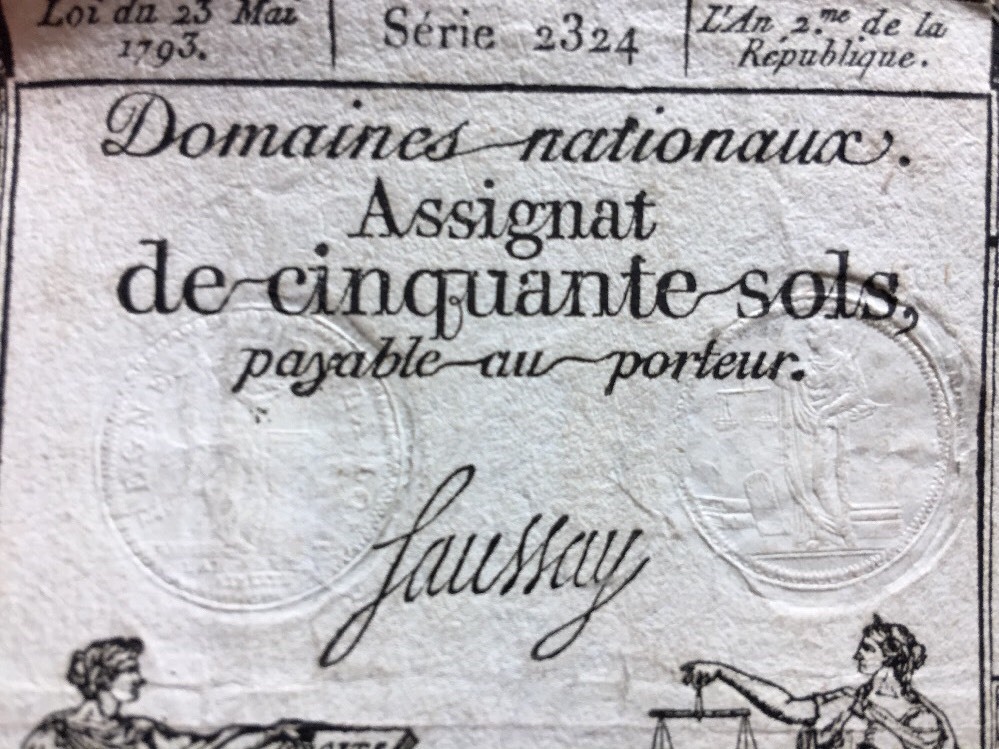 Loi du 23 Mai
1793.
Série 2324
L'An 2.me de la
République.
Domaines nationaux.
Assignat
de cinquante sols,
payable au porteur.
Saussay